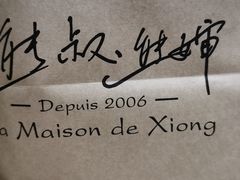 熊叔·熊婶
— Depuis 2006 —
a Maison de Xiong